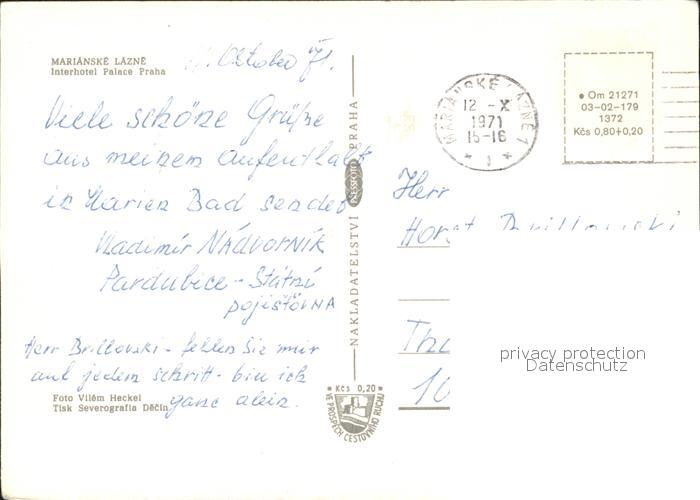 MARIÁNSKÉ LÁZNĚ
Interhotel Palace Praha
Oktober 71.
Viele schöne Grüße
aus meinem aufenthalt
in Marien Bad sendet
Vladimír NÁDVORNÍK
Pardubice - Státní
pojišťovna
Herr Brillovski - fehlen Sie mir
auf jedem schritt - bin ich
ganz alein.
Foto Vilém Heckel
Tisk Severografia Děčín
NAKLADATELSTVÍ PRESSFOTO PRAHA
Kčs 0,20
VE PROSPĚCH CESTOVNÍHO RUCHU
MARIÁNSKÉ LÁZNĚ 1
12 -X
1971
15-16
1
Om 21271
03-02-179
1372
Kčs 0,80+0,20
Herr
Horst
10
privacy protection
Datenschutz